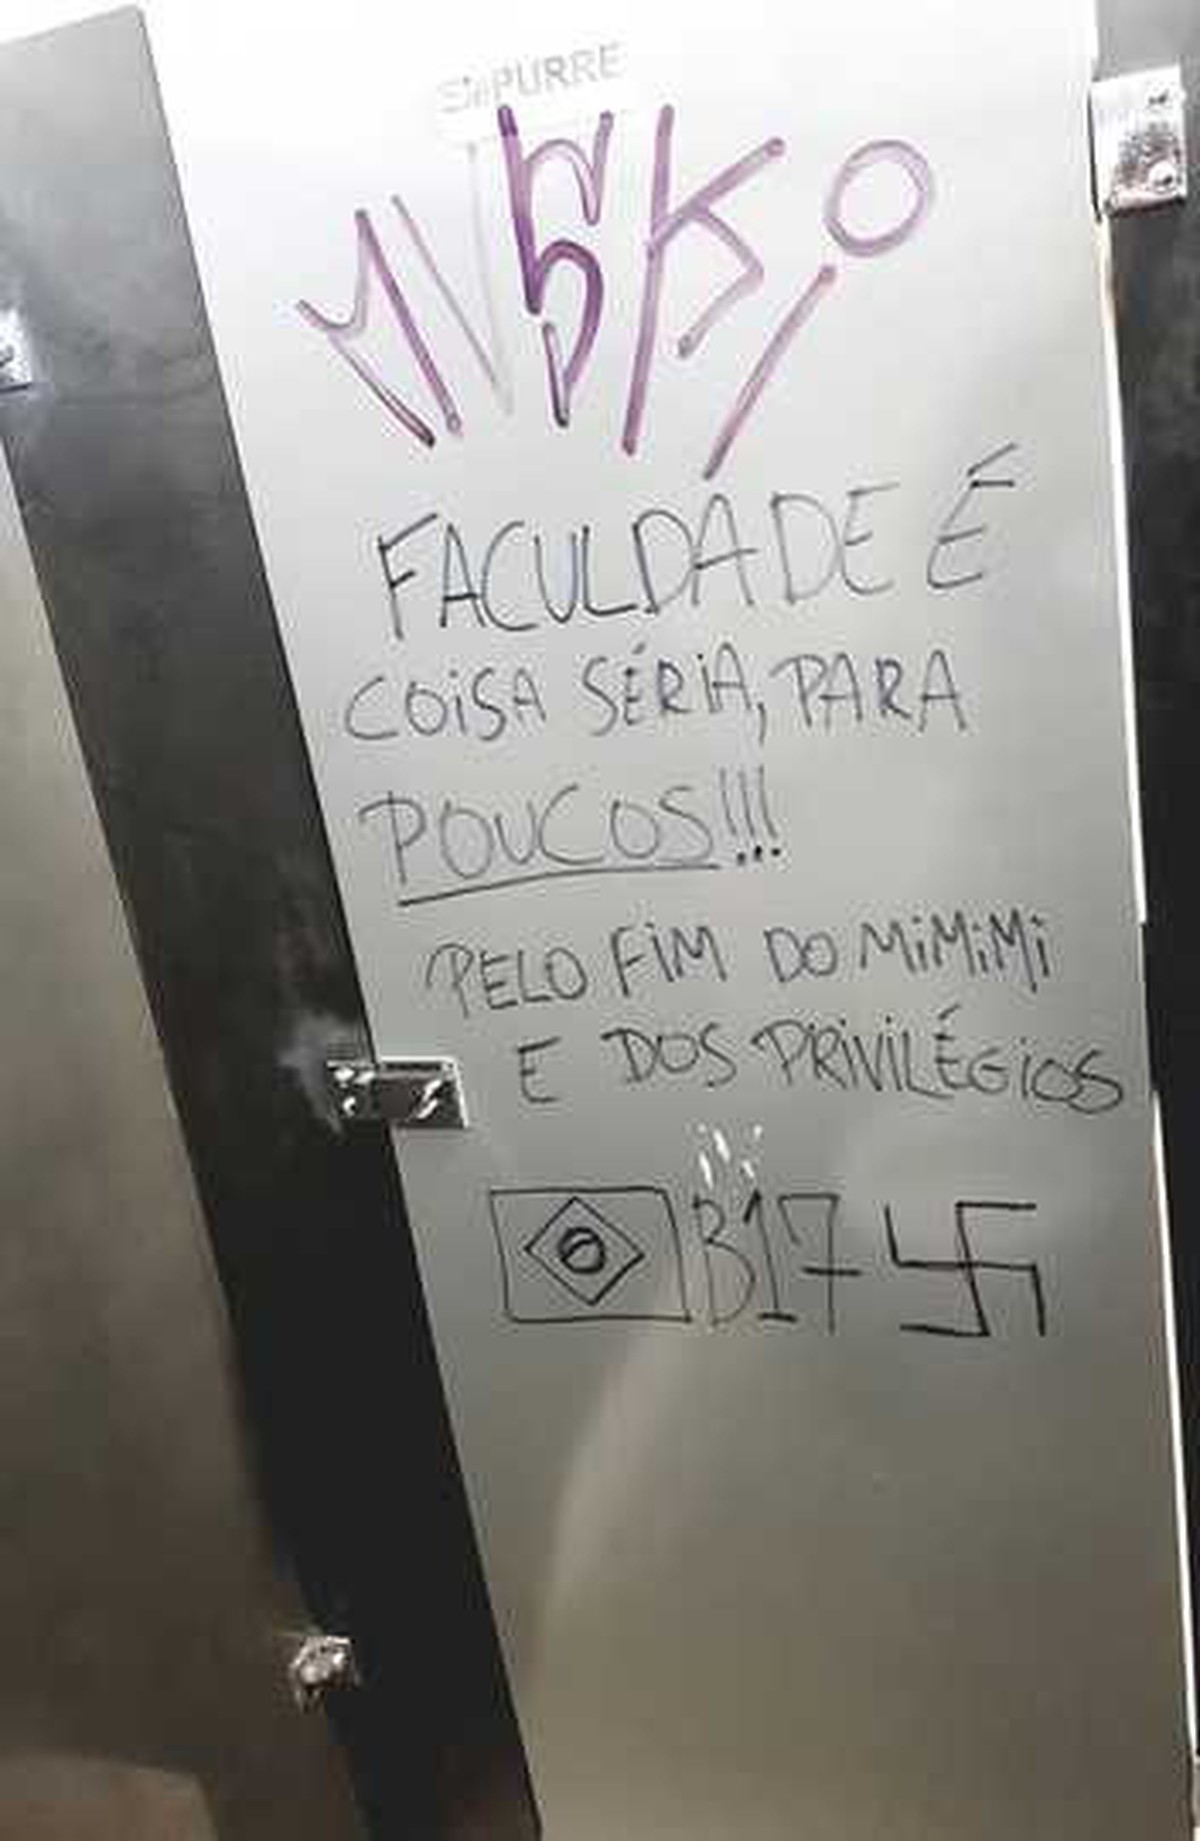 EMPURRE
FACULDADE É
COISA SÉRIA, PARA
POUCOS!!!
PELO FIM DO MIMIMI
E DOS PRIVILÉGIOS
B17